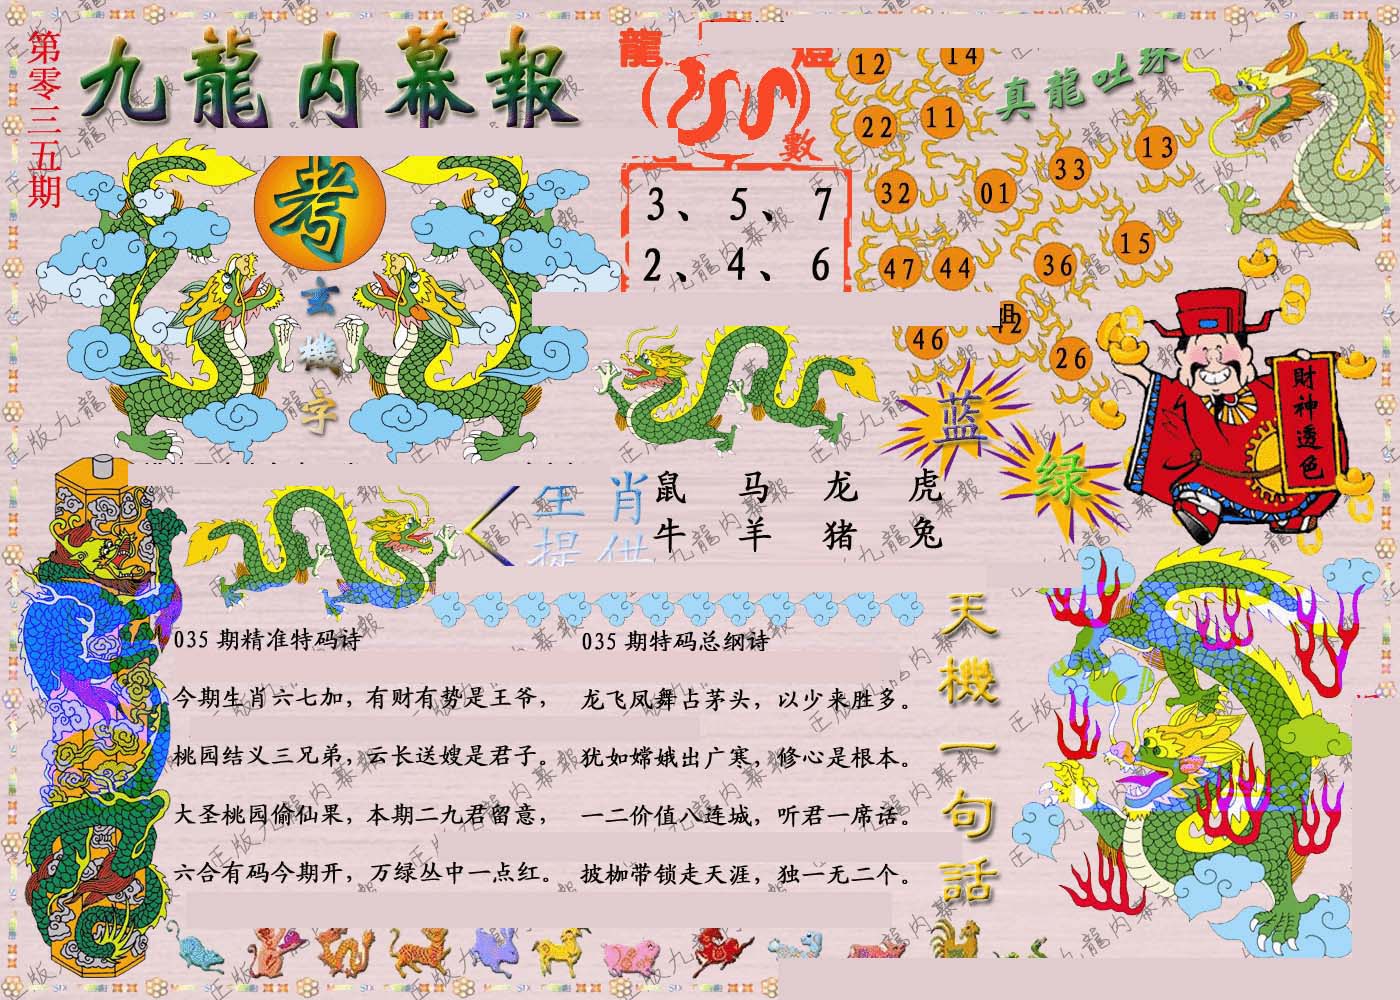 第零三五期
九龍内幕報
考
玄機字
龍
數
3、5、7
2、4、6
12 14
22 11
32 01 33 13
47 44 36 15
46 26
真龍吐珠
財神透色
蓝
绿
生肖
提供
鼠 马 龙 虎
牛 羊 猪 兔
035 期精准特码诗
今期生肖六七加，有财有势是王爷，
桃园结义三兄弟，云长送嫂是君子。
大圣桃园偷仙果，本期二九君留意，
六合有码今期开，万绿丛中一点红。
035 期特码总纲诗
龙飞凤舞占茅头，以少来胜多。
犹如嫦娥出广寒，修心是根本。
一二价值八连城，听君一席话。
披枷带锁走天涯，独一无二个。
天機一句話
正版九龍内幕報